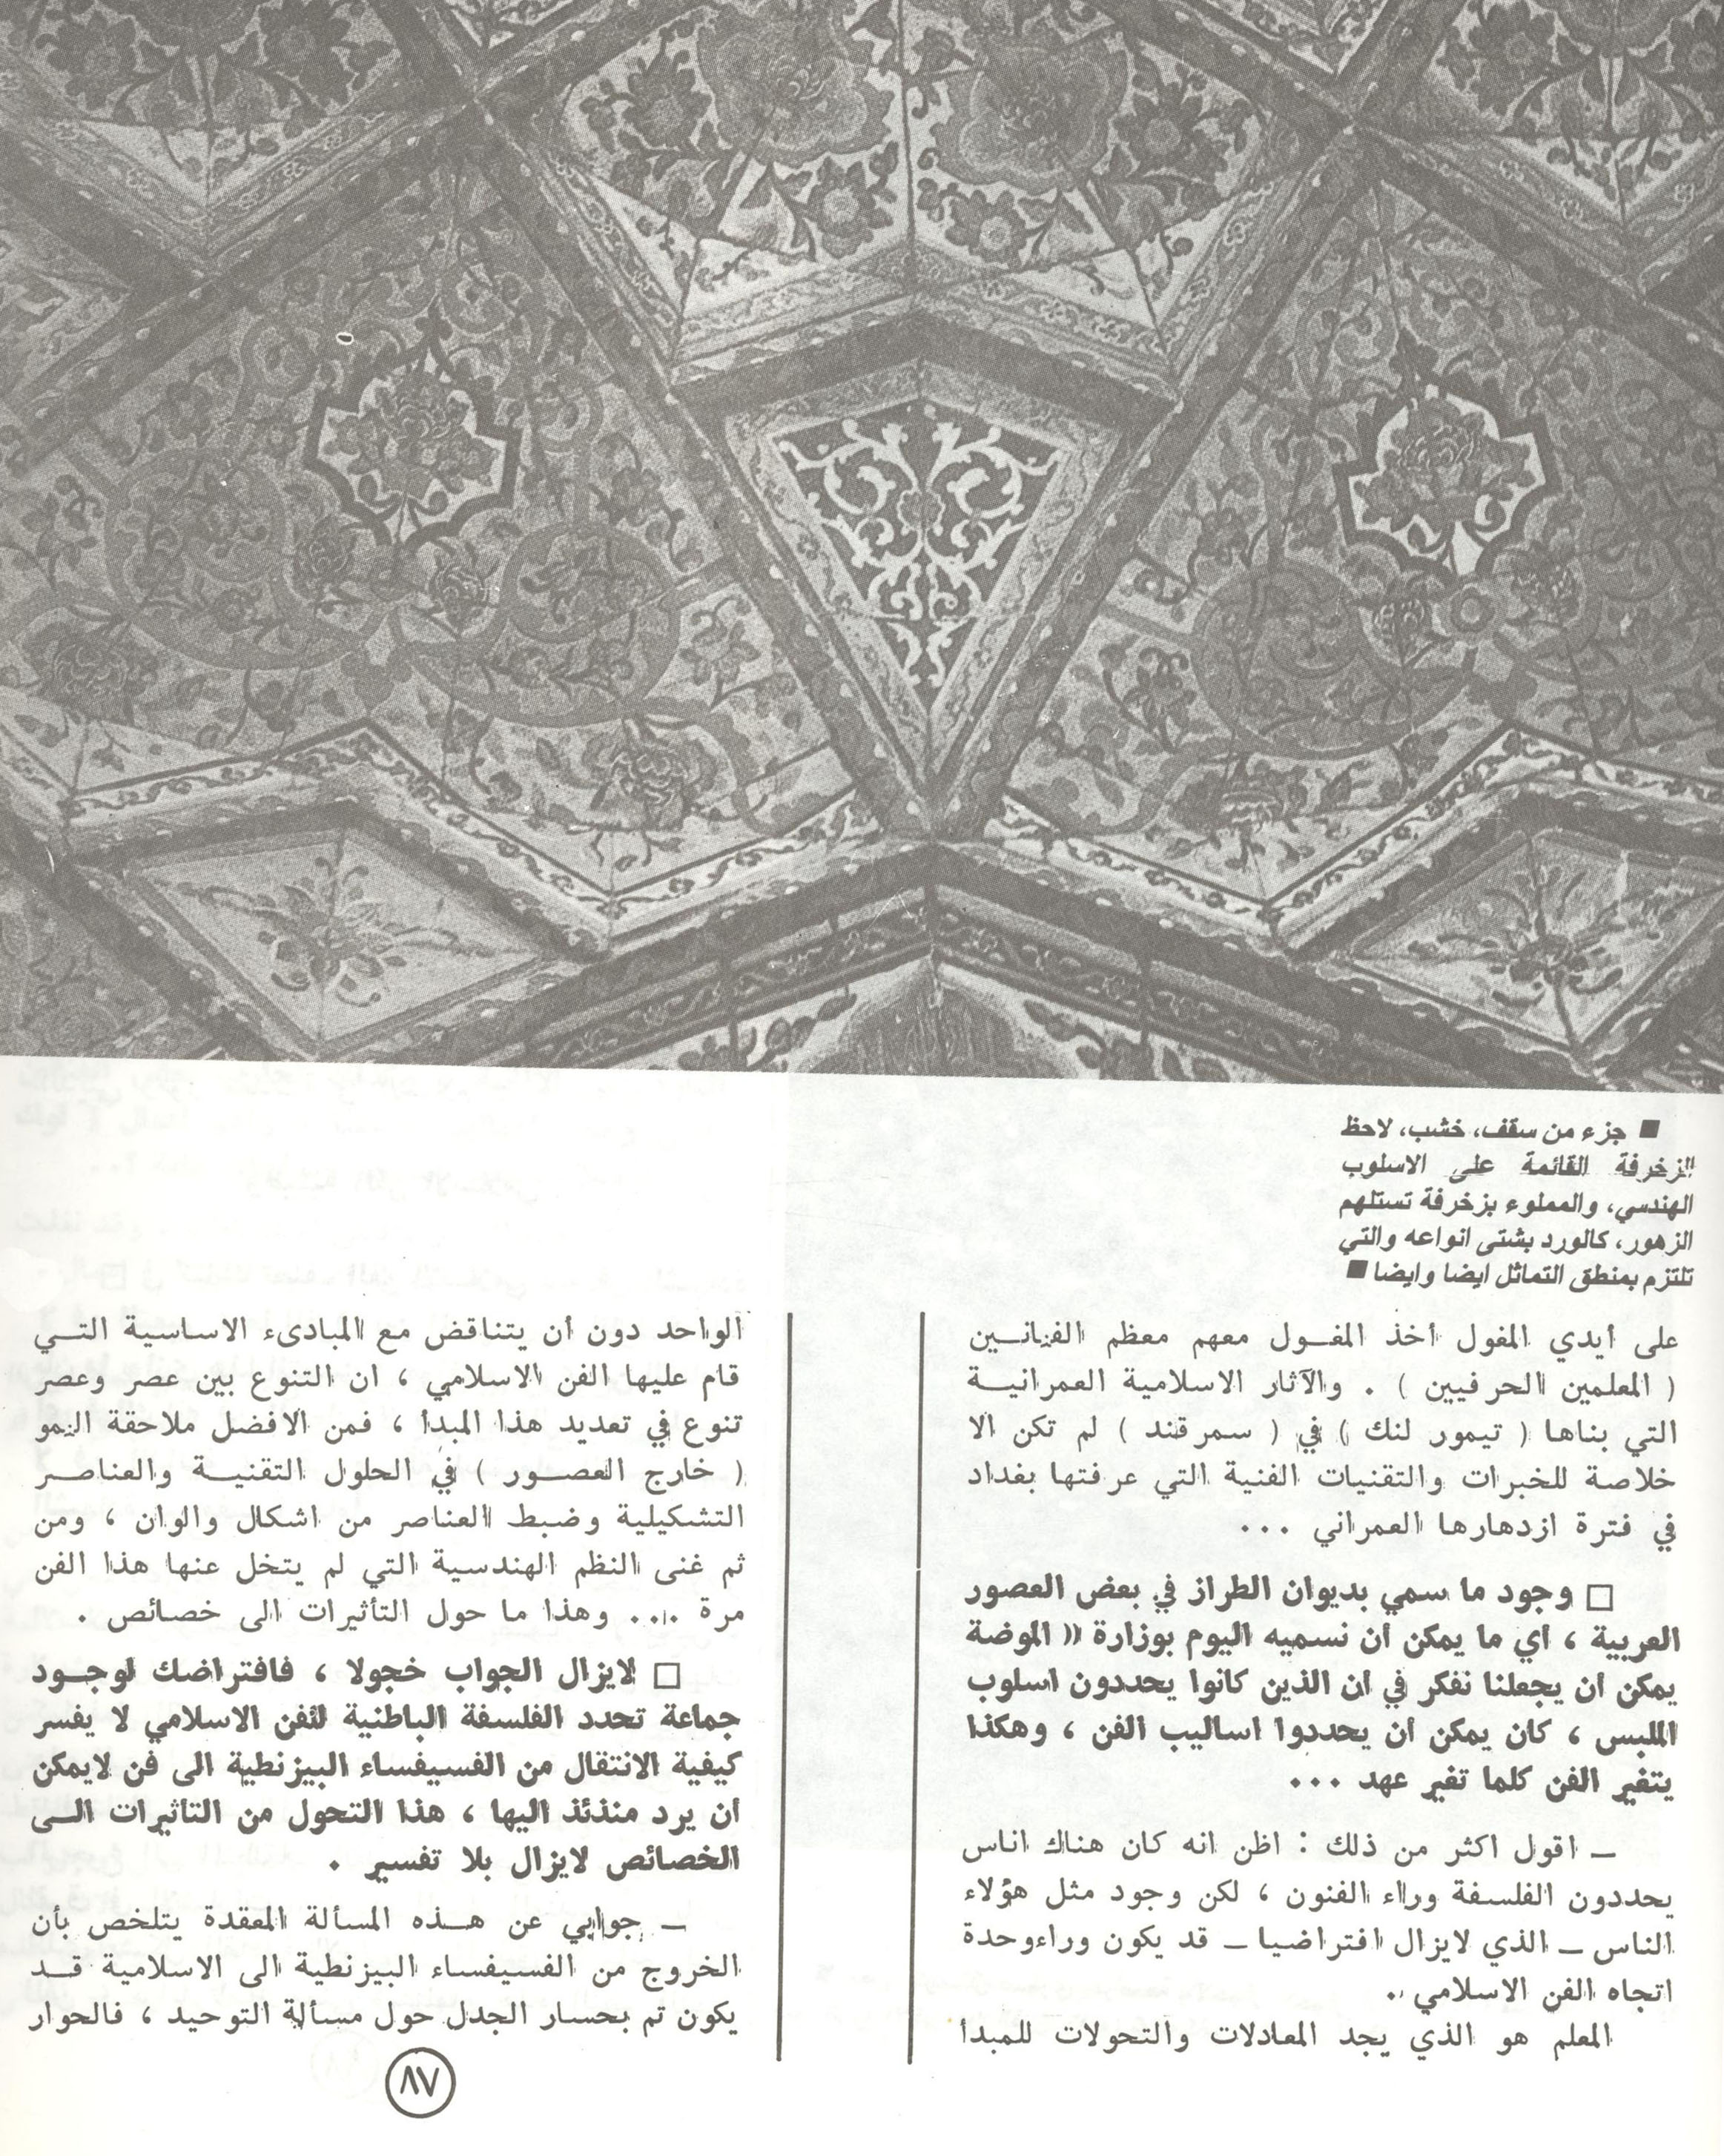 ■ جزء من سقف، خشب، لاحظ
الزخرفة القائمة على الاسلوب
الهندسي، والمملوء بزخرفة تستلهم
الزهور، كالورد بشتى انواعه والتي
تلتزم بمنطق التماثل ايضا وايضا ■
على أيدي المغول أخذ المغول معهم معظم الفنانين
( المعلمين الحرفيين ) . والآثار الاسلامية العمرانية
التي بناها ( تيمور لنك ) في ( سمرقند ) لم تكن الا
خلاصة للخبرات والتقنيات الفنية التي عرفتها بغداد
في فترة ازدهارها العمراني ...
□ وجود ما سمي بديوان الطراز في بعض العصور
العربية ، أي ما يمكن أن نسميه اليوم بوزارة « الموضة
يمكن أن يجعلنا نفكر في أن الذين كانوا يحددون اسلوب
الملبس ، كان يمكن أن يحددوا اساليب الفن ، وهكذا
يتغير الفن كلما تغير عهد ...
ــ اقول اكثر من ذلك : اظن انه كان هناك اناس
يحددون الفلسفة وراء الفنون ، لكن وجود مثل هؤلاء
الناس ــ الذي لايزال افتراضيا ــ قد يكون وراءوحدة
اتجاه الفن الاسلامي ..
المعلم هو الذي يجد المعادلات والتحولات للمبدأ
الواحد دون أن يتناقض مع المبادىء الاساسية التي
قام عليها الفن الاسلامي ، ان التنوع بين عصر وعصر
تنوع في تعديد هذا المبدأ ، فمن الافضل ملاحقة النمو
( خارج العصور ) في الحلول التقنية والعناصر
التشكيلية وضبط العناصر من اشكال والوان ، ومن
ثم غنى النظم الهندسية التي لم يتخل عنها هذا الفن
مرة ... وهذا ما حول التأثيرات الى خصائص .
□ لايزال الجواب خجولا ، فافتراضك لوجود
جماعة تحدد الفلسفة الباطنية للفن الاسلامي لا يفسر
كيفية الانتقال من الفسيفساء البيزنطية الى فن لايمكن
أن يرد منذئذ اليها ، هذا التحول من التأثيرات الى
الخصائص لايزال بلا تفسير .
ــ جوابي عن هذه المسألة المعقدة يتلخص بأن
الخروج من الفسيفساء البيزنطية الى الاسلامية قد
يكون تم بحسار الجدل حول مسألة التوحيد ، فالحوار
٨٧